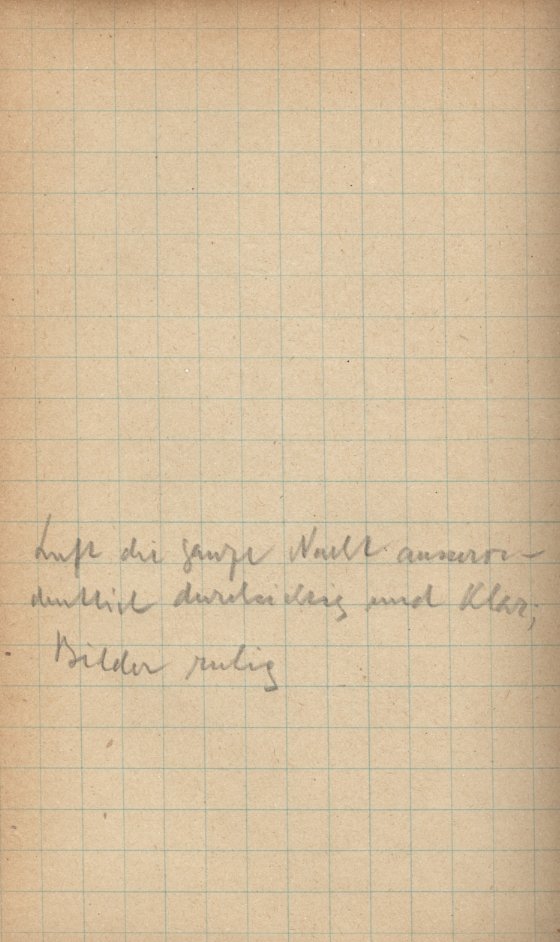 Luft die ganze Nacht ausseror-
dentlich durchsichtig und klar;
Bilder ruhig